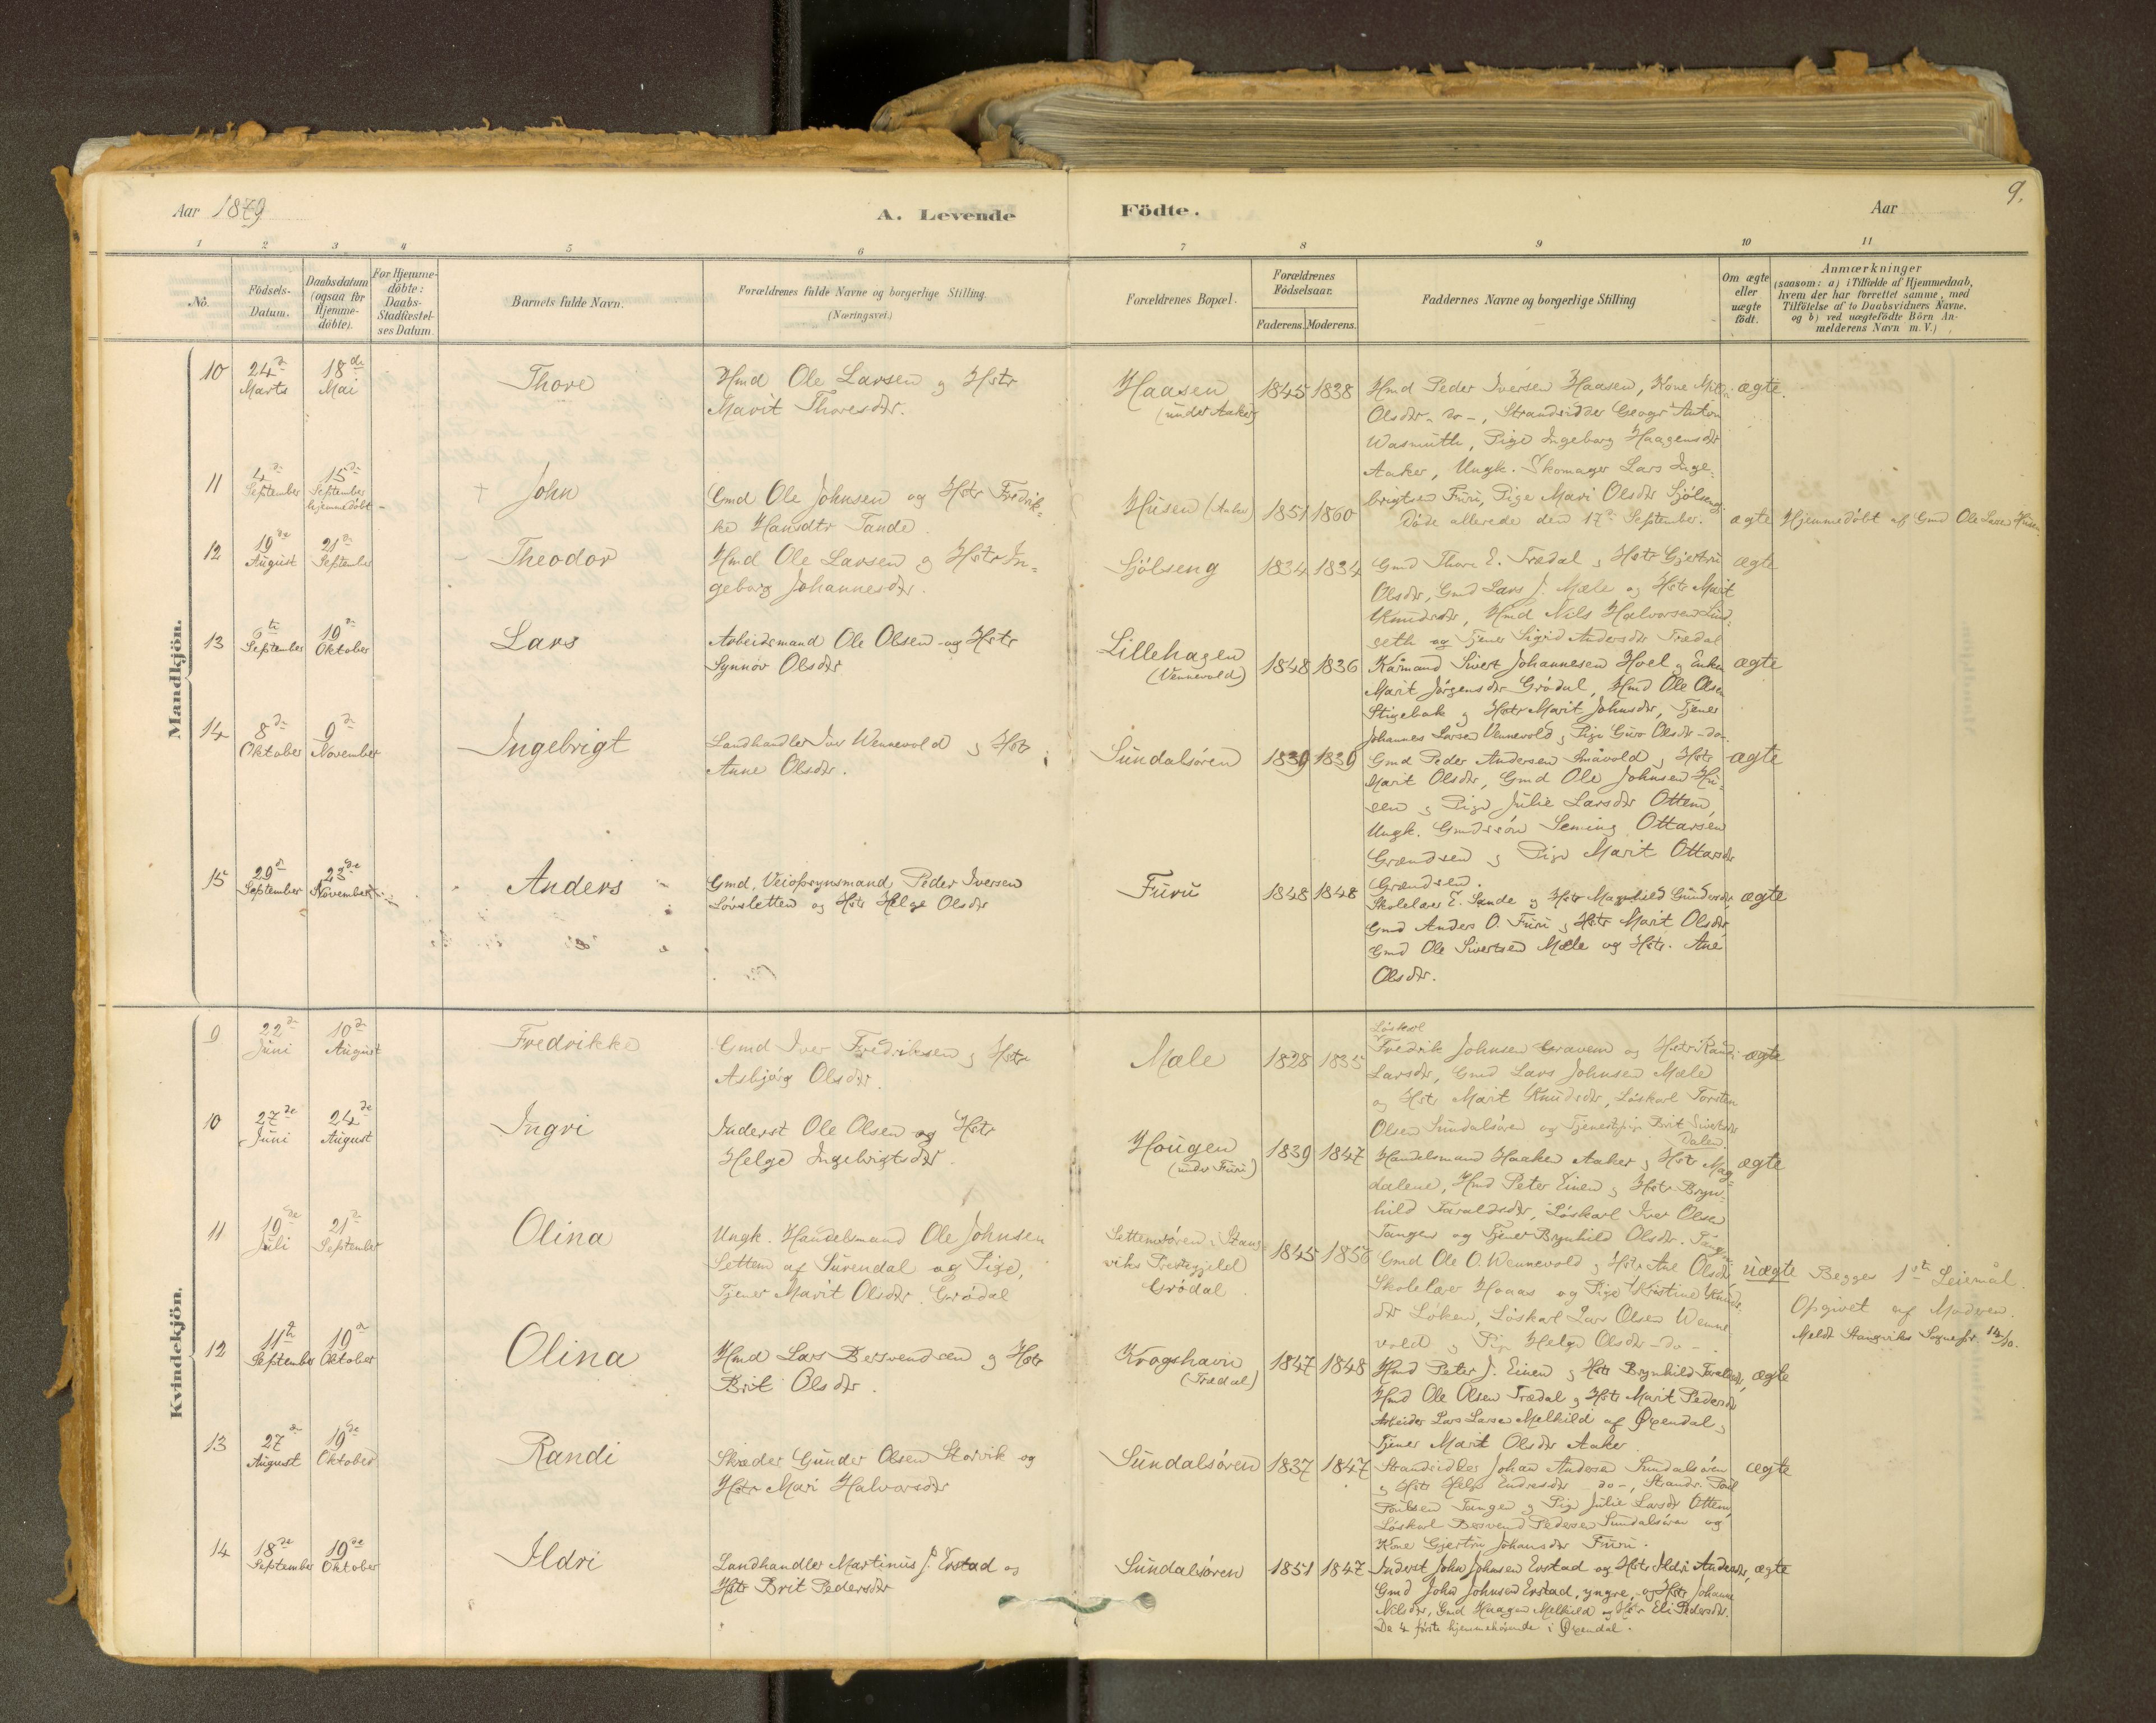 Aar 1879
A. Levende Födte.
Aar
9.
1 2 3 4 5 6 7 8 9 10 11
No.
Födsels-
Datum.
Daabsdatum
(ogsaa for
Hjemme-
döbte).
For Hjemme-
döbte:
Daabs-
Stadfæstel-
ses Datum
Barnets fulde Navn.
Forældrenes fulde Navne og borgerlige Stilling
(Næringsvei.)
Forældrenes Bopæl.
Forældrenes
Födselsaar.
Faderens. Moderens.
Faddernes Navne og borgerlige Stilling
Om ægte
eller
uægte
födt.
Anmærkninger
(saasom: a) i Tilfælde af Hjemmedaab,
hvem der har forrettet samme, med
Tilföielse af to Daabsvidners Navne,
og b) ved uægtefödte Börn An-
melderens Navn m. V.)
Mandkjön.
10
24de
Marts
18de
Mai
Thore
Hmd Ole Larsen og Hstr
Marit Thoresdtr.
Haasen
(under Aaker)
1845 1838
Hmd Peder Iversen Haasen, Kone
Olsdtr - do -, Strandsidder Georg Anton
Wasmuth, Pige Ingeborg Haagensdtr
Aaker, Ungk. Skomager Lars Inge-
brigtsen Furu, Pige Mari Olsdtr Sjölseng
ægte.
11
4de
September
15de
September
hjemmedöbt
† John
Gmd Ole Johnsen og Hstr Fredrik-
ke Hansdtr Tande.
Husen (Aaker)
1851 1860
Döde allerede den 17de September.
ægte
Hjemmedöbt af Gmd Ole Larsen Husen.
12
19de
August
21de
September
Theodor
Hmd Ole Larsen og Hstr In-
geborg Johannesdtr.
Sjölseng
1834 1834
Gmd Thore E. Trædal og Hstr Gjertru
Olsdtr, Gmd Lars J. Mæle og Hstr Marit
Knudsdtr, Hmd Nils Halvorsen Lind-
seth og Tjener Sigrid Andersdtr Trædal
ægte
13
6te
September
19de
Oktober
Lars
Arbeidsmand Ole Olsen og Hstr
Synnöv Olsdtr
Lillehagen
(Vennevold)
1848 1836
Kårmand Sivert Johannesen Hoel og Enken
Marit Jörgensdtr Grödal, Hmd Ole Olsen
Stigebak og Hstr Marit Johnsdtr, Tjener
Johannes Larsen Vennevold og Pige Guro Olsdtr - do -.
ægte
14
8de
Oktober
9de
November
Ingebrigt
Landhandler Iver Wennevold og Hstr
Anne Olsdtr.
Sundalsören
1839 1839
Gmd Peder Andersen Småvold og Hstr
Marit Olsdtr, Gmd Ole Johnsen Hu-
sen og Pige Julie Larsdtr Ottem,
Ungk. Gmdssön Seming Ottarsen
Grændsen og Pige Marit Ottarsdtr
Grændsen.
ægte
15
29de
September
23de
November
Anders
Gmd, Veiopsynsmand, Peder Iversen
Lövsletten og Hstr Helge Olsdtr
Furu
1848 1848
Skolelærer E. Sande og Hstr Magnhild Gundersdtr,
Gmd Anders O. Furu og Hstr Marit Olsdtr,
Gmd Ole Sivertsen Mæle og Hstr. Ane
Olsdtr.
ægte
Kvindekjön.
9
22de
Juni
10de
August
Fredrikke
Gmd Iver Fredriksen og Hstr
Asbjörg Olsdtr.
Mæle
1828 1835
Löskarl
Fredrik Johnsen Gravem og Hstr Randi
Larsdtr, Gmd Lars Johnsen Mæle
og Hstr Marit Knudsdtr, Löskarl Torsten
Olsen Sundalsören og Tjenestpige Brit Sivertsdtr
Dalen.
ægte
10
27de
Juni
24de
August
Ingri
Inderst Ole Olsen og Hstr
Helge Ingebrigtsdtr.
Hougen
(under Furu)
1839 1847
Handelsmand Haaken Aaker og Hstr Mag-
dalene, Hmd Peter Einen og Hstr Bryn-
hild Taraldsdtr, Löskarl Iver Olsen
Tangen og Tjener Brynhild Olsdtr. Tangen
ægte
11
19de
Juli
21de
September
Olina
Ungk. Handelsmand Ole Johnsen
Settem af Surendal og Pige,
Tjener Marit Olsdtr. Grödal
Settemsören i Stang-
viks Præstegjeld
Grödal
1845 1856
Gmd Ole O. Wennevold og Hstr Ane Olsdtr
Skolelærer Honaas og Pige Kristine Knuds-
dtr Löken, Löskarl Lars Olsen Wenne-
vold og Pige Helge Olsdtr - do -.
uægte
Begges 1ste Leiemål.
Opgivet af Moderen.
Meldt Stangviks Sognepr 14/10.
12
11te
September
19de
Oktober
Olina
Hmd Lars Bersvendsen og Hstr
Brit Olsdtr.
Krogshavn
(Trædal)
1847 1848
Hmd Peter J. Einen og Hstr Brynhild Taraldsdtr,
Hmd Ole Olsen Trædal og Hstr Marit Pedersdtr
Arbeider Lars Larsen Melhild af Öxendal og
Tjener Marit Olsdtr Aaker
ægte
13
27de
August
19de
Oktober
Randi
Skræder Gunder Olsen Storvik og
Hstr Mari Halvorsdtr
Sundalsören
1837 1847
Strandsidder Johan Andersen Sundalsören
og Hstr Helge Endresdtr - do -, Strands. Poul
Poulsen Tangen og Pige Julie Larsdtr Ottem,
Löskarl Bersvend Pedersen Sundalsören og
Kone Gjertru Johansdtr Furu.
ægte
14
18de
September
19de
Oktober
Ildri
Landhandler Martinus J. Erstad og
Hstr Brit Pedersdtr
Sundalsören
1851 1847
Inderst John Johnsen Erstad og Hstr Ildri Andersdtr,
Gmd John Johnsen Erstad, yngre, og Hstr Johanne
Nilsdtr, Gmd Haagen Melhild og Hstr Eli Pedersdtr.
De 4 förste hjemmehörende i Öxendal.
ægte